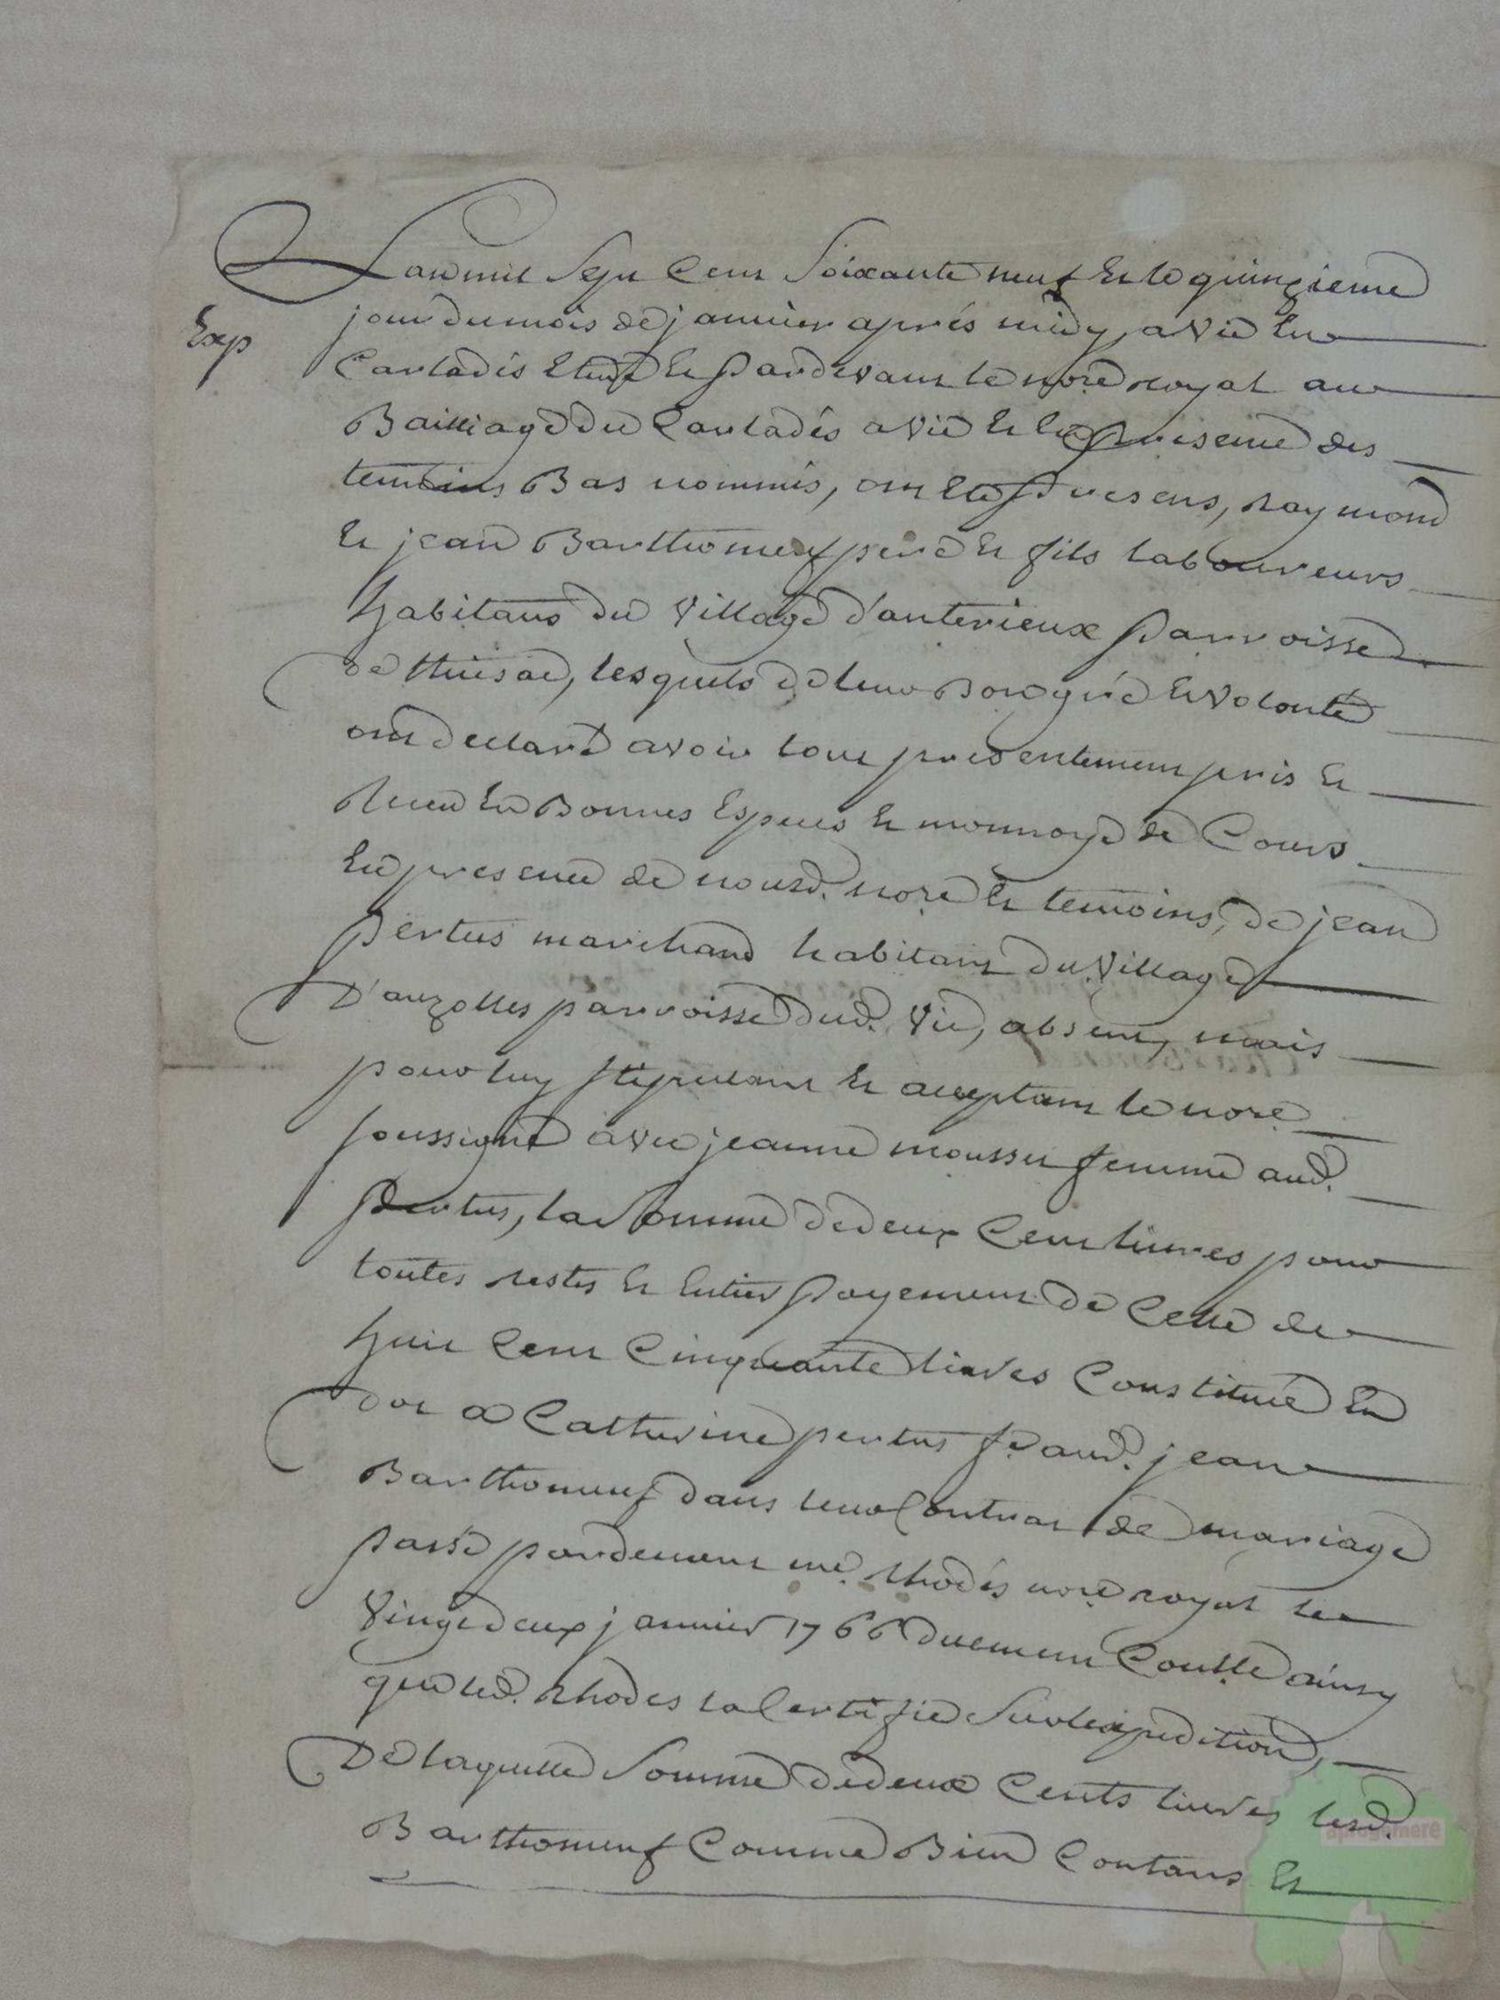 L'an mil sept cent soixante neuf et le quinzieme
Exp
jour du mois de janvier aprés midy, a Vic en
Carladés etude et pardevant le nore royal au
Bailliage du Carladés a Vic et en presence des
temoins Bas nommés, ont eté presens, Raymond
et jean Barthomeuf pere et fils laboureurs
habitans du village d'anterieux parroisse
de thiesac, lesquels de leur Bon gré et volonté
ont declaré avoir tout presentement pris et
Receu en Bonnes Especes et monnoye de Cours
en presence de nousd. nore et temoins, de jean
pertus marchand habitant du village
D'auzolles parroisse dud. Vic, absent, mais
pour luy stipulant et acceptant le nore
soussigné avec jeanne mousset femme aud.
Pertus, la somme de deux Cent livres pour
toutes restes et entier payement de Celle de
huit Cent Cinquante livres Constituée en
dot a Catherine pertus fe. aud. jean
Barthomeuf dans leur Contrat de mariage
passé pardevant me. Rhodés nore royal le
vingt deux janvier 1766 duement Conttlé ainsy
que led. Rhodes la Certifié sur l'expedition,
De laquelle somme de deux Cents livres lesd.
Barthomeuf Comme Bien Contans et
aprogemere